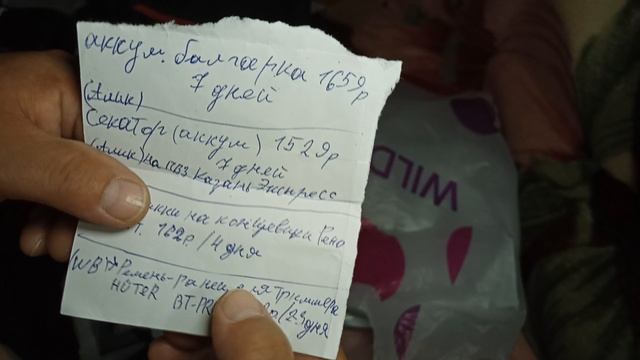 аккум. балгарка 1659р
7 дней
(Алик)
Секатор (аккум) 1529р
7 дней
(Алик) на Казань Экспресс
на концевики Рено
т. 162р/4 дня
WB Ремень-ранец для триммера
HÜTER BT-PR
WILD